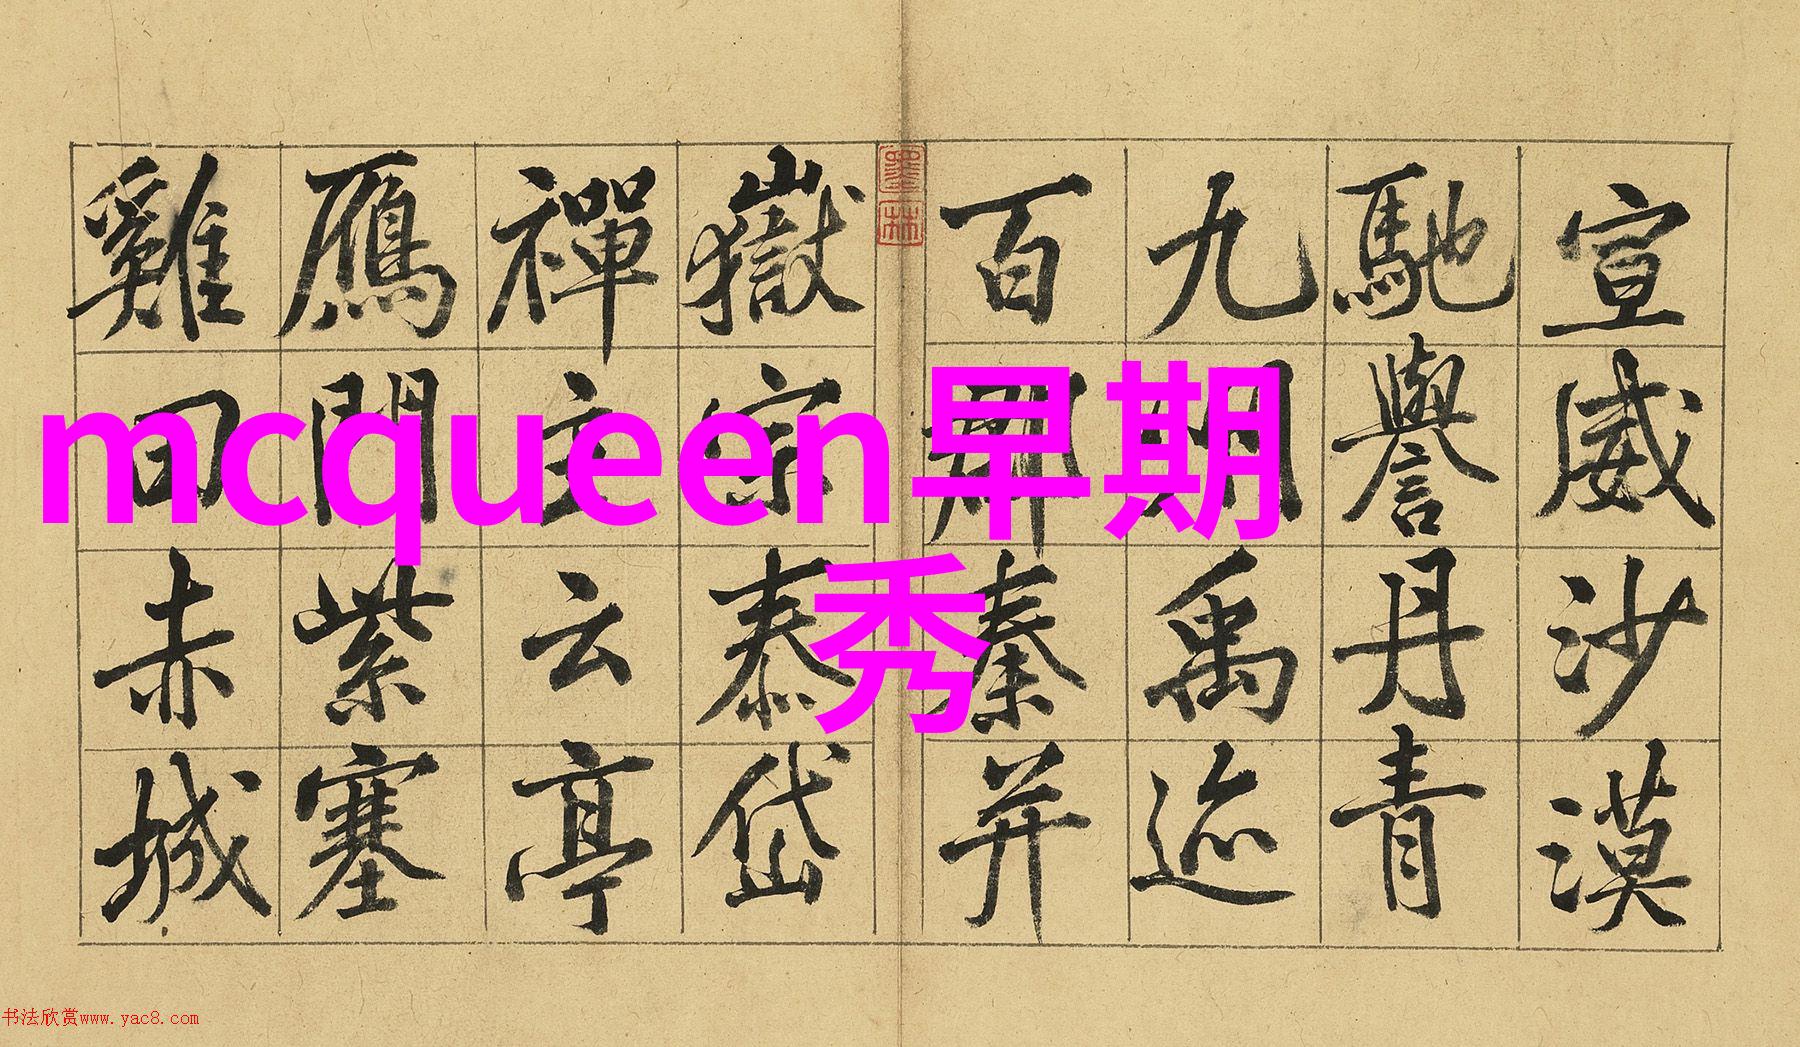 宣威沙漠
馳譽丹青
九州禹迹
百郡秦并
嶽宗泰岱
禪主云亭
鴈門紫塞
雞田赤城
墨林
mcqueen早期
秀
书法欣赏www.yac8.com